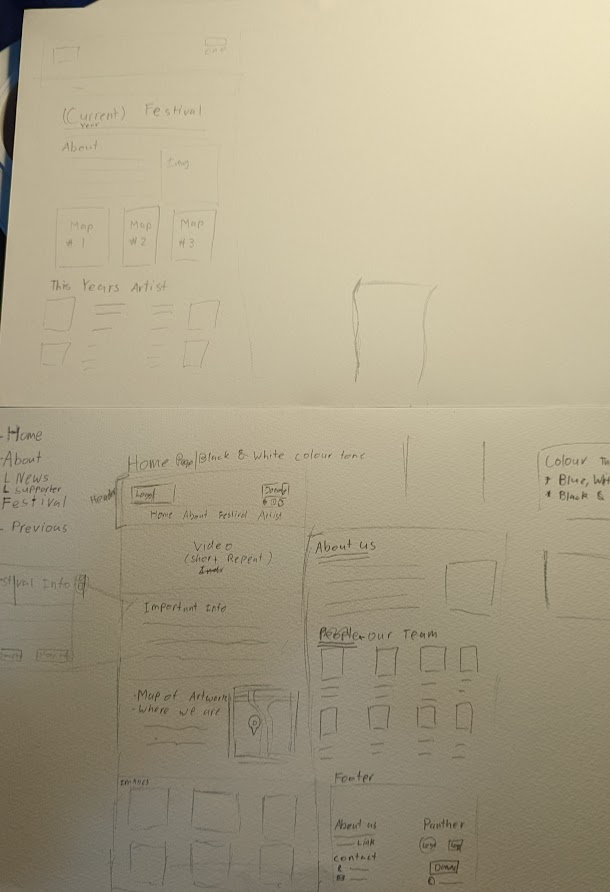 (Current) Festival
Year
About
Img
Map
# 1
Map
# 2
Map
# 3
This Years Artist
- Home
- About
L News
L Supporter
Festival
- Previous
Home Page/Black & White colour tone
Header
Logo
Donate
Home About Festival Artist
Video
(Short Repeat)
Important Info
- Map of Artwork
- Where we are
Images
About us
People - our Team
Footer
About us
Link
Contact
Panther
Logo
Logo
Donate
Colour To
* Blue, Whi
* Black &
stival Info